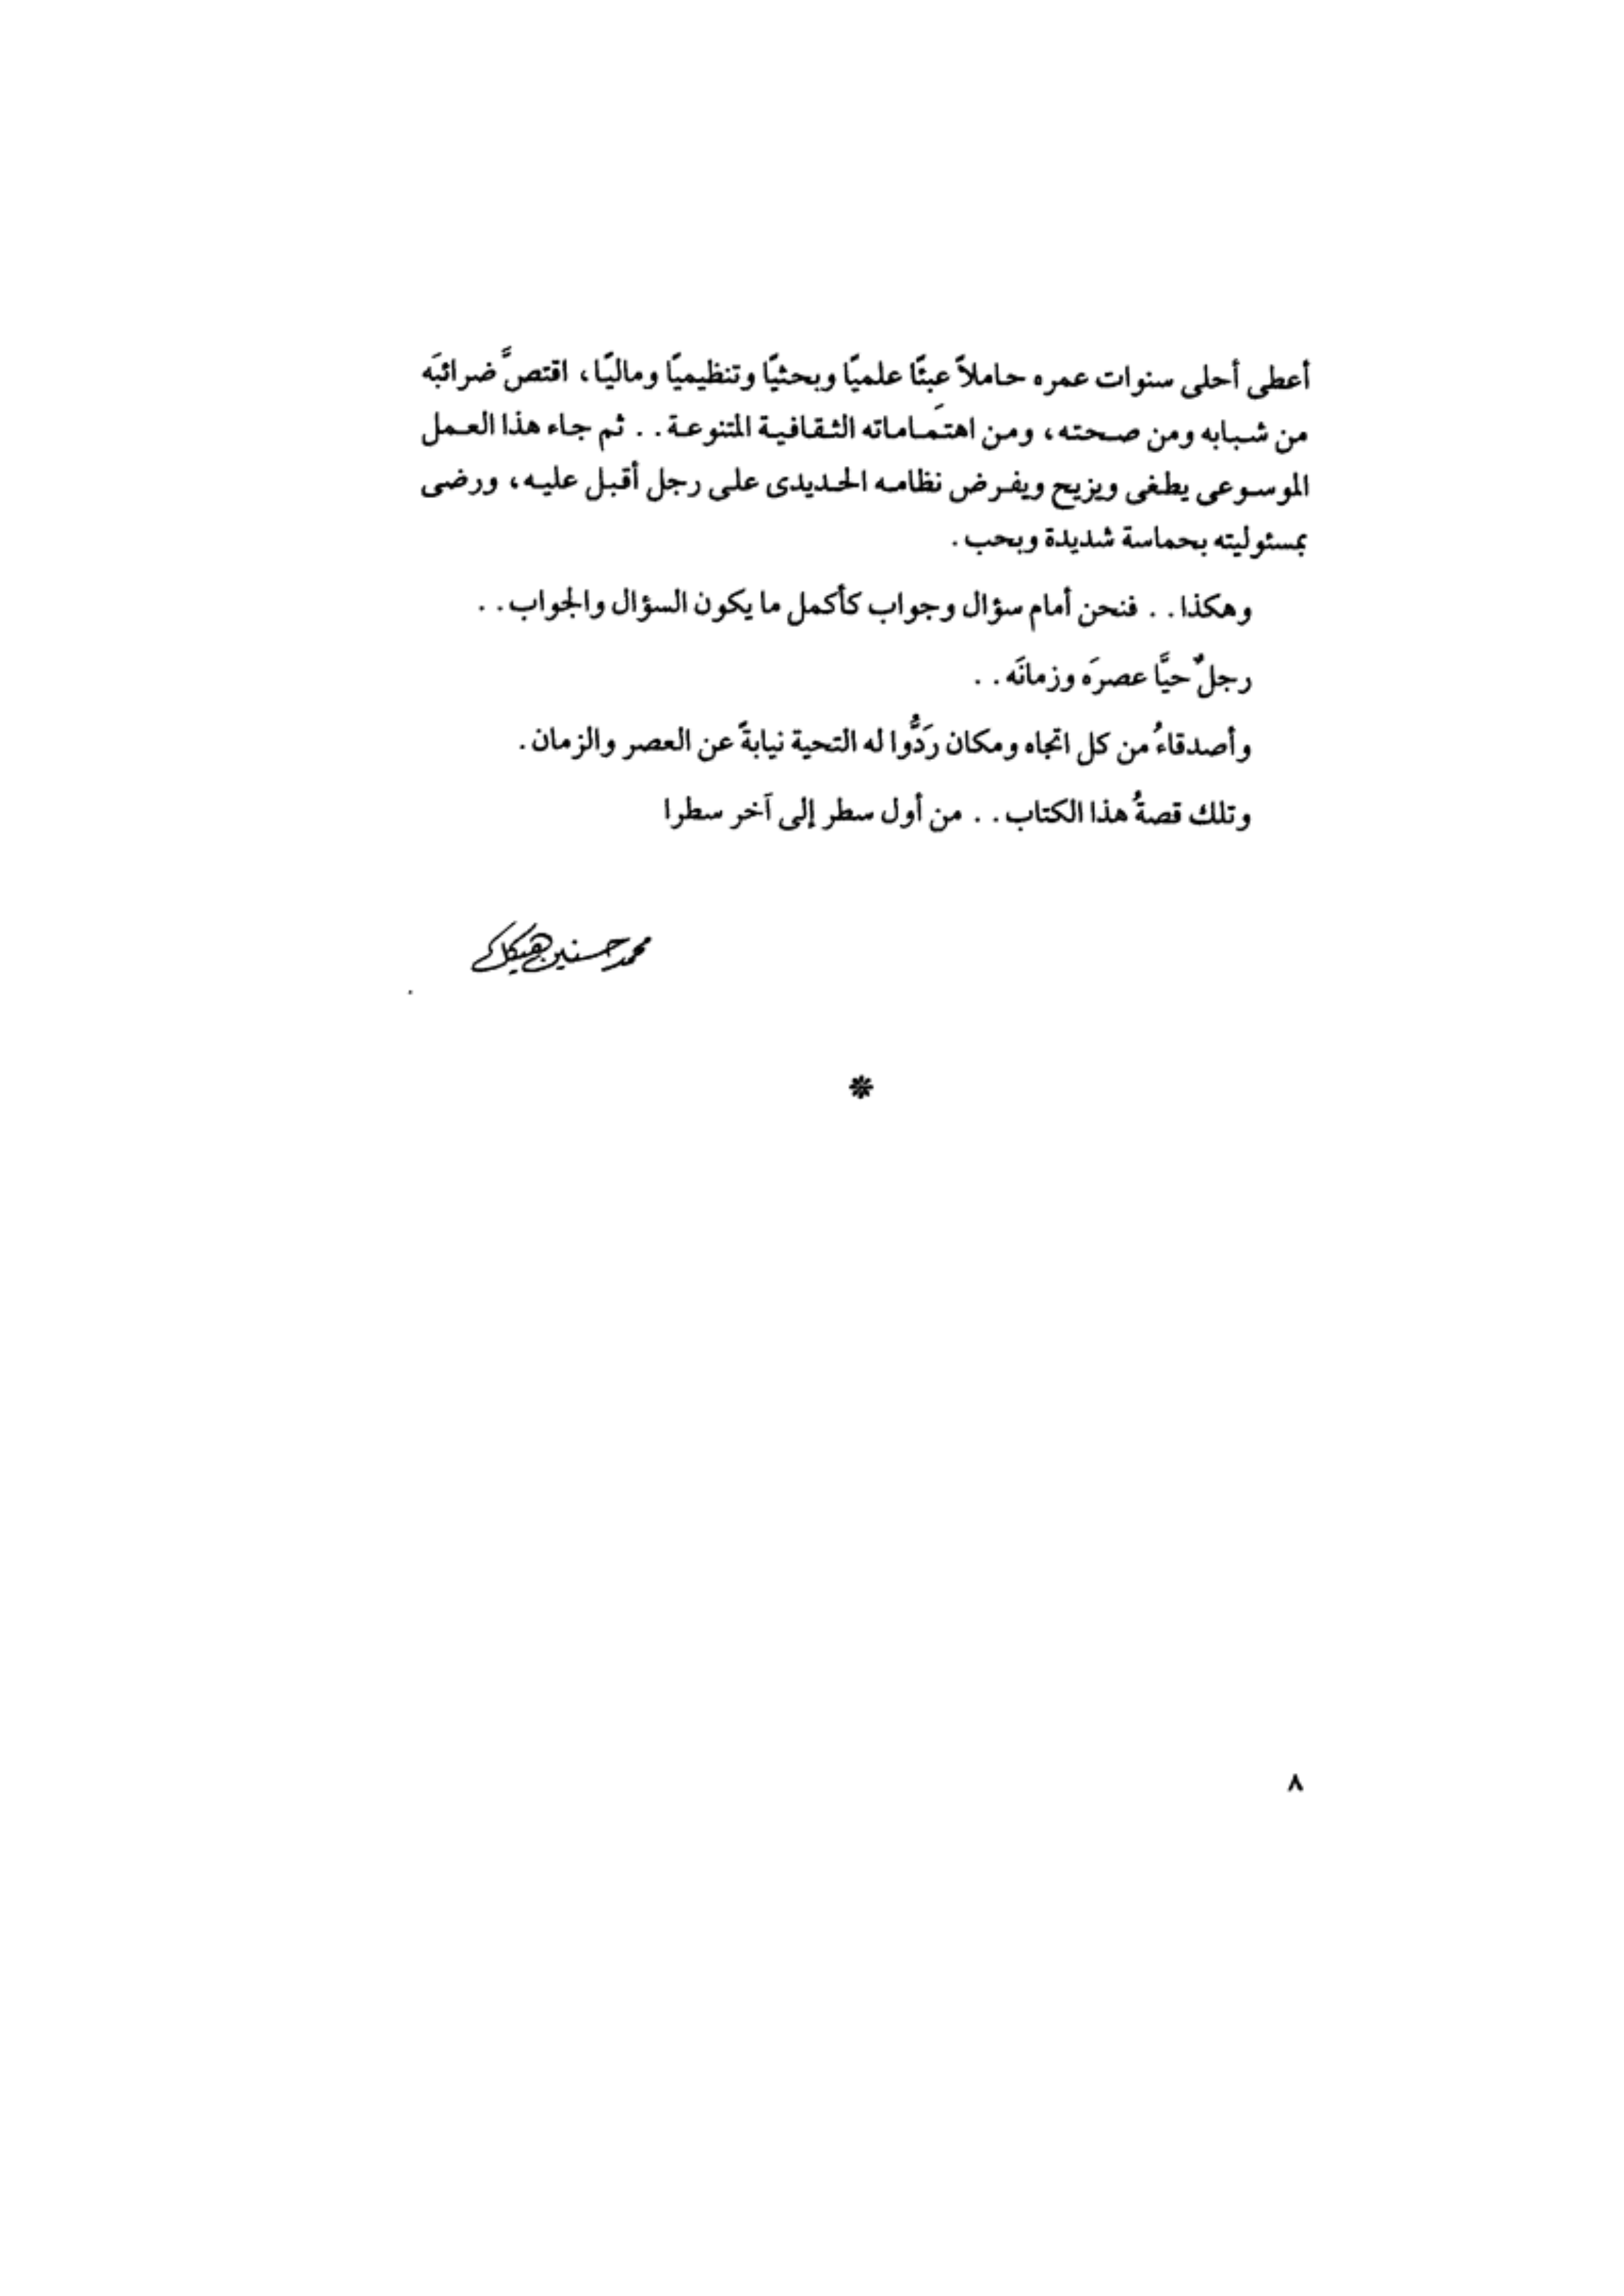 أعطى أحلى سنوات عمره حاملاً عبئًا علميًا وبحثيًا وتنظيميًا وماليًا، اقتصَّ ضرائبَه
من شبابه ومن صحته، ومن اهتمَاماته الثقافية المتنوعة . . ثم جاء هذا العمل
الموسوعى يطغى ويزيح ويفرض نظامه الحديدى على رجل أقبل عليه، ورضى
بمسئوليته بحماسة شديدة وبحب.
وهكذا . . فنحن أمام سؤال وجواب كأكمل ما يكون السؤال والجواب . .
رجلٌ حيَّا عصرَه وزمانَه . .
وأصدقاءُ من كل اتجاه ومكان رَدُّوا له التحية نيابةً عن العصر والزمان.
وتلك قصةُ هذا الكتاب . . من أول سطر إلى آخر سطرا
محمد حسنين هيكل
*
٨